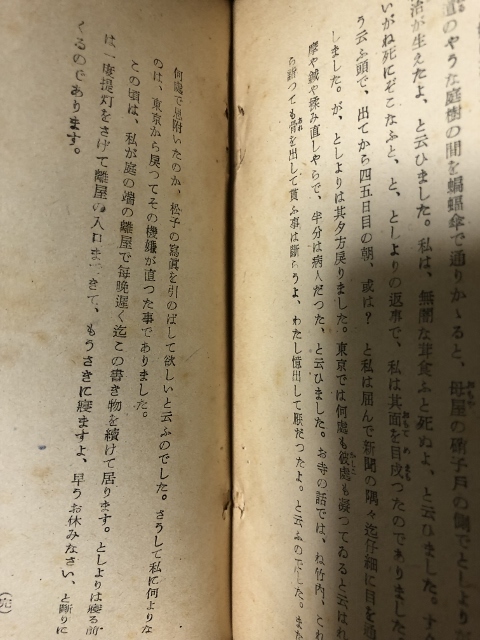 のやうな庭樹の間を蝙蝠傘で通りかゝると、母屋の硝子戸の側でとしより
治が生えたよ、と云ひました。私は、無闇な茸食ふと死ぬよ、と云ひました。す
いがね死にぞこなふと、と、としよりの返事で、私は其面を目戍つたのでありました
う云ふ頭で、出てから四五日目の朝、或は？　と私は屈んで新聞の隅々迄仔細に目を
しました。が、としよりは其夕方戻りました。東京では何處も彼處も凝つてゐると云は
摩や鍼や揉み直しやらで、半分は病人だつた、と云ひました。お寺の話では、ね竹内、これ
つても骨を出して貰ふ事は斷らうよ、わたし憶出して厭だつたよ。と云ふのでした。また
何處で思附いたのか、松子の寫眞を引のばして欲しいと云ふのでした。さうして私に何よりな
のは、東京から戻つてその機嫌が直つた事でありました。
この頃は、私が庭の端の離屋で毎晩遲く迄この書き物を續けて居ります。としよりは寢る前
は一度提灯をさげて離屋の入口まできて、もうさきに寢ますよ、早うお休みなさい、と斷りに
くるのであります。